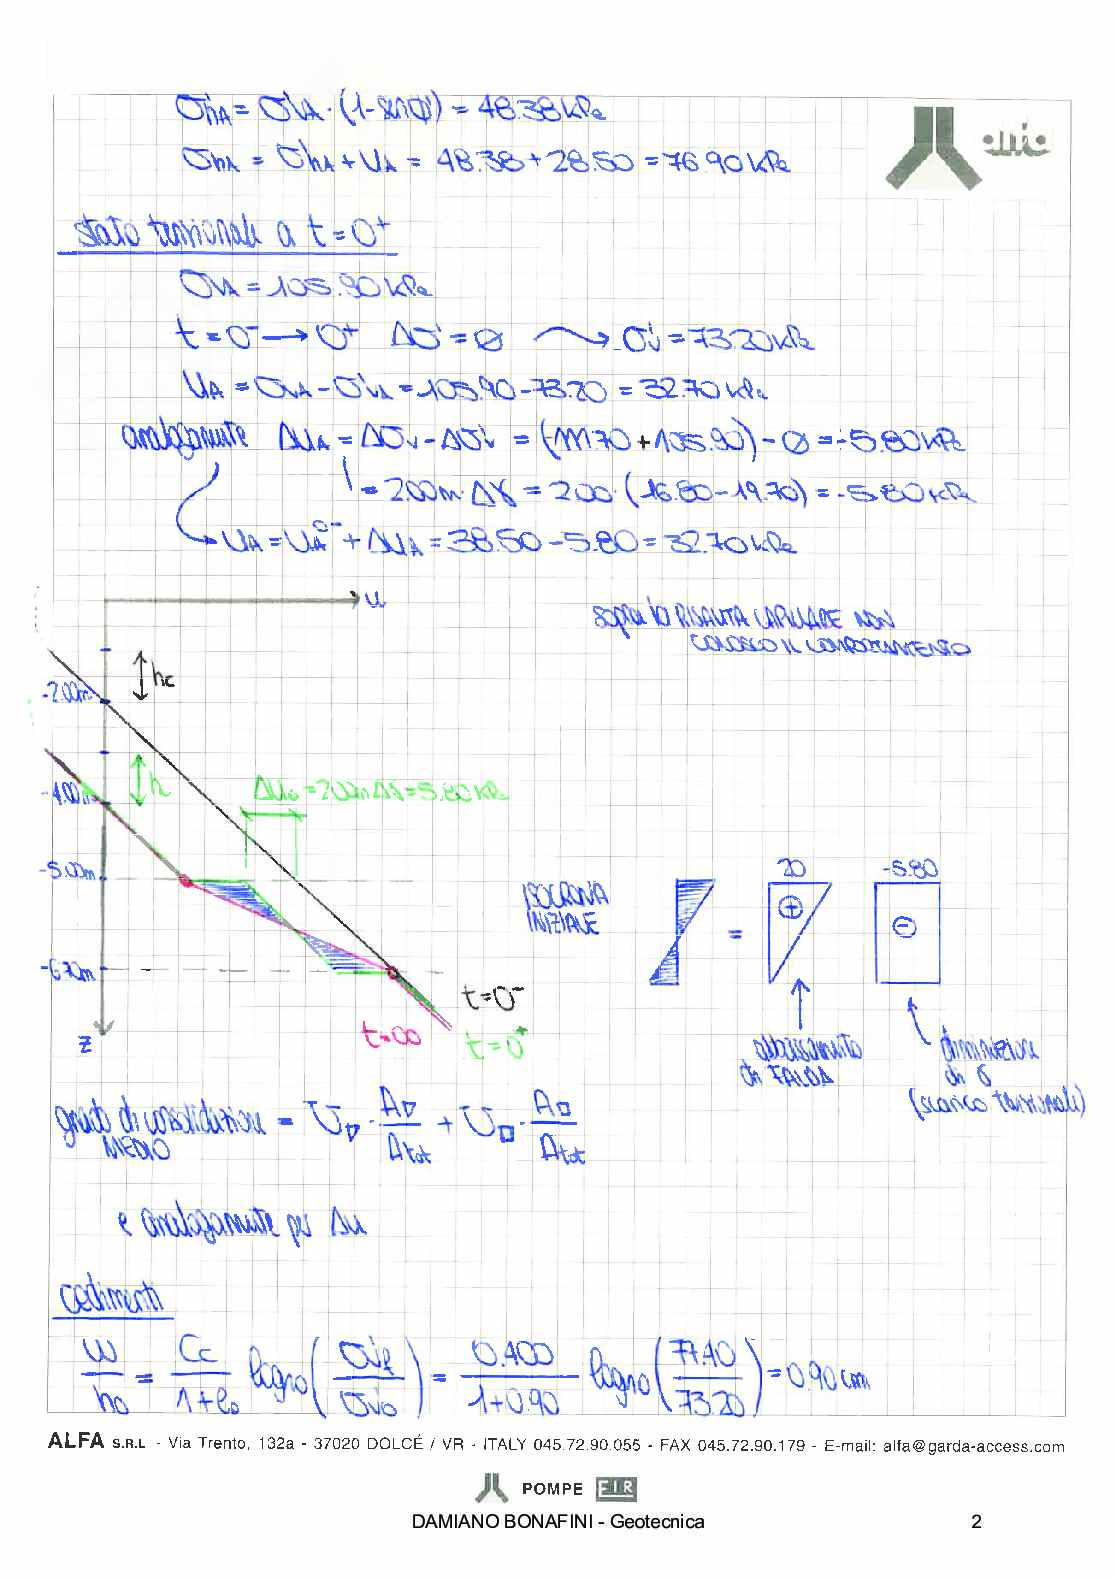 σ'hA = σ'vA · (1-senφ') = 48.38 kPa
σhA = σ'hA + uA = 48.38 + 28.50 = 76.90 kPa
alfa
stato tensionale a t = 0⁺
σvA = 105.90 kPa
t = 0⁻ → 0⁺ Δσ' = ø ⤳ σ'v = 73.20 kPa
uA = σvA - σ'vA = 105.90 - 73.20 = 32.70 kPa
analogamente ΔuA = Δσv - Δσ'v = (-111.70 + 105.90) - ø = -5.80 kPa
= 2.00m · Δγ = 2.00 · (16.80 - 19.70) = -5.80 kPa
uA = uA⁰⁻ + ΔuA = 38.50 - 5.80 = 32.70 kPa
u
sopra la RISALITA CAPILLARE NON
CONOSCO IL COMPORTAMENTO
hc
-2.00m
h
Δu₀ = 2.00m Δγ = 5.80 kPa
-4.00m
-5.00m
20
-5.80
ISOCRONA
INIZIALE
=
⊕
⊖
-6.70m
t = 0⁻
t = ∞
t = 0⁺
z
abbassamento
di FALDA
diminuzione
di σ
(scarico tensionale)
grado di consolidazione = U▽ · A▽/Atot + U□ · A□/Atot
MEDIO
e analogamente per Δu
cedimenti
w/h₀ = Cc/1+e₀ log₁₀(σ'vf/σ'v₀) = 0.400/1+0.90 log₁₀(77.40/73.20) = 0.90 cm
ALFA S.R.L - Via Trento, 132a - 37020 DOLCÉ / VR - ITALY 045.72.90.055 - FAX 045.72.90.179 - E-mail: alfa@garda-access.com
POMPE FIR
DAMIANO BONAFINI - Geotecnica 2